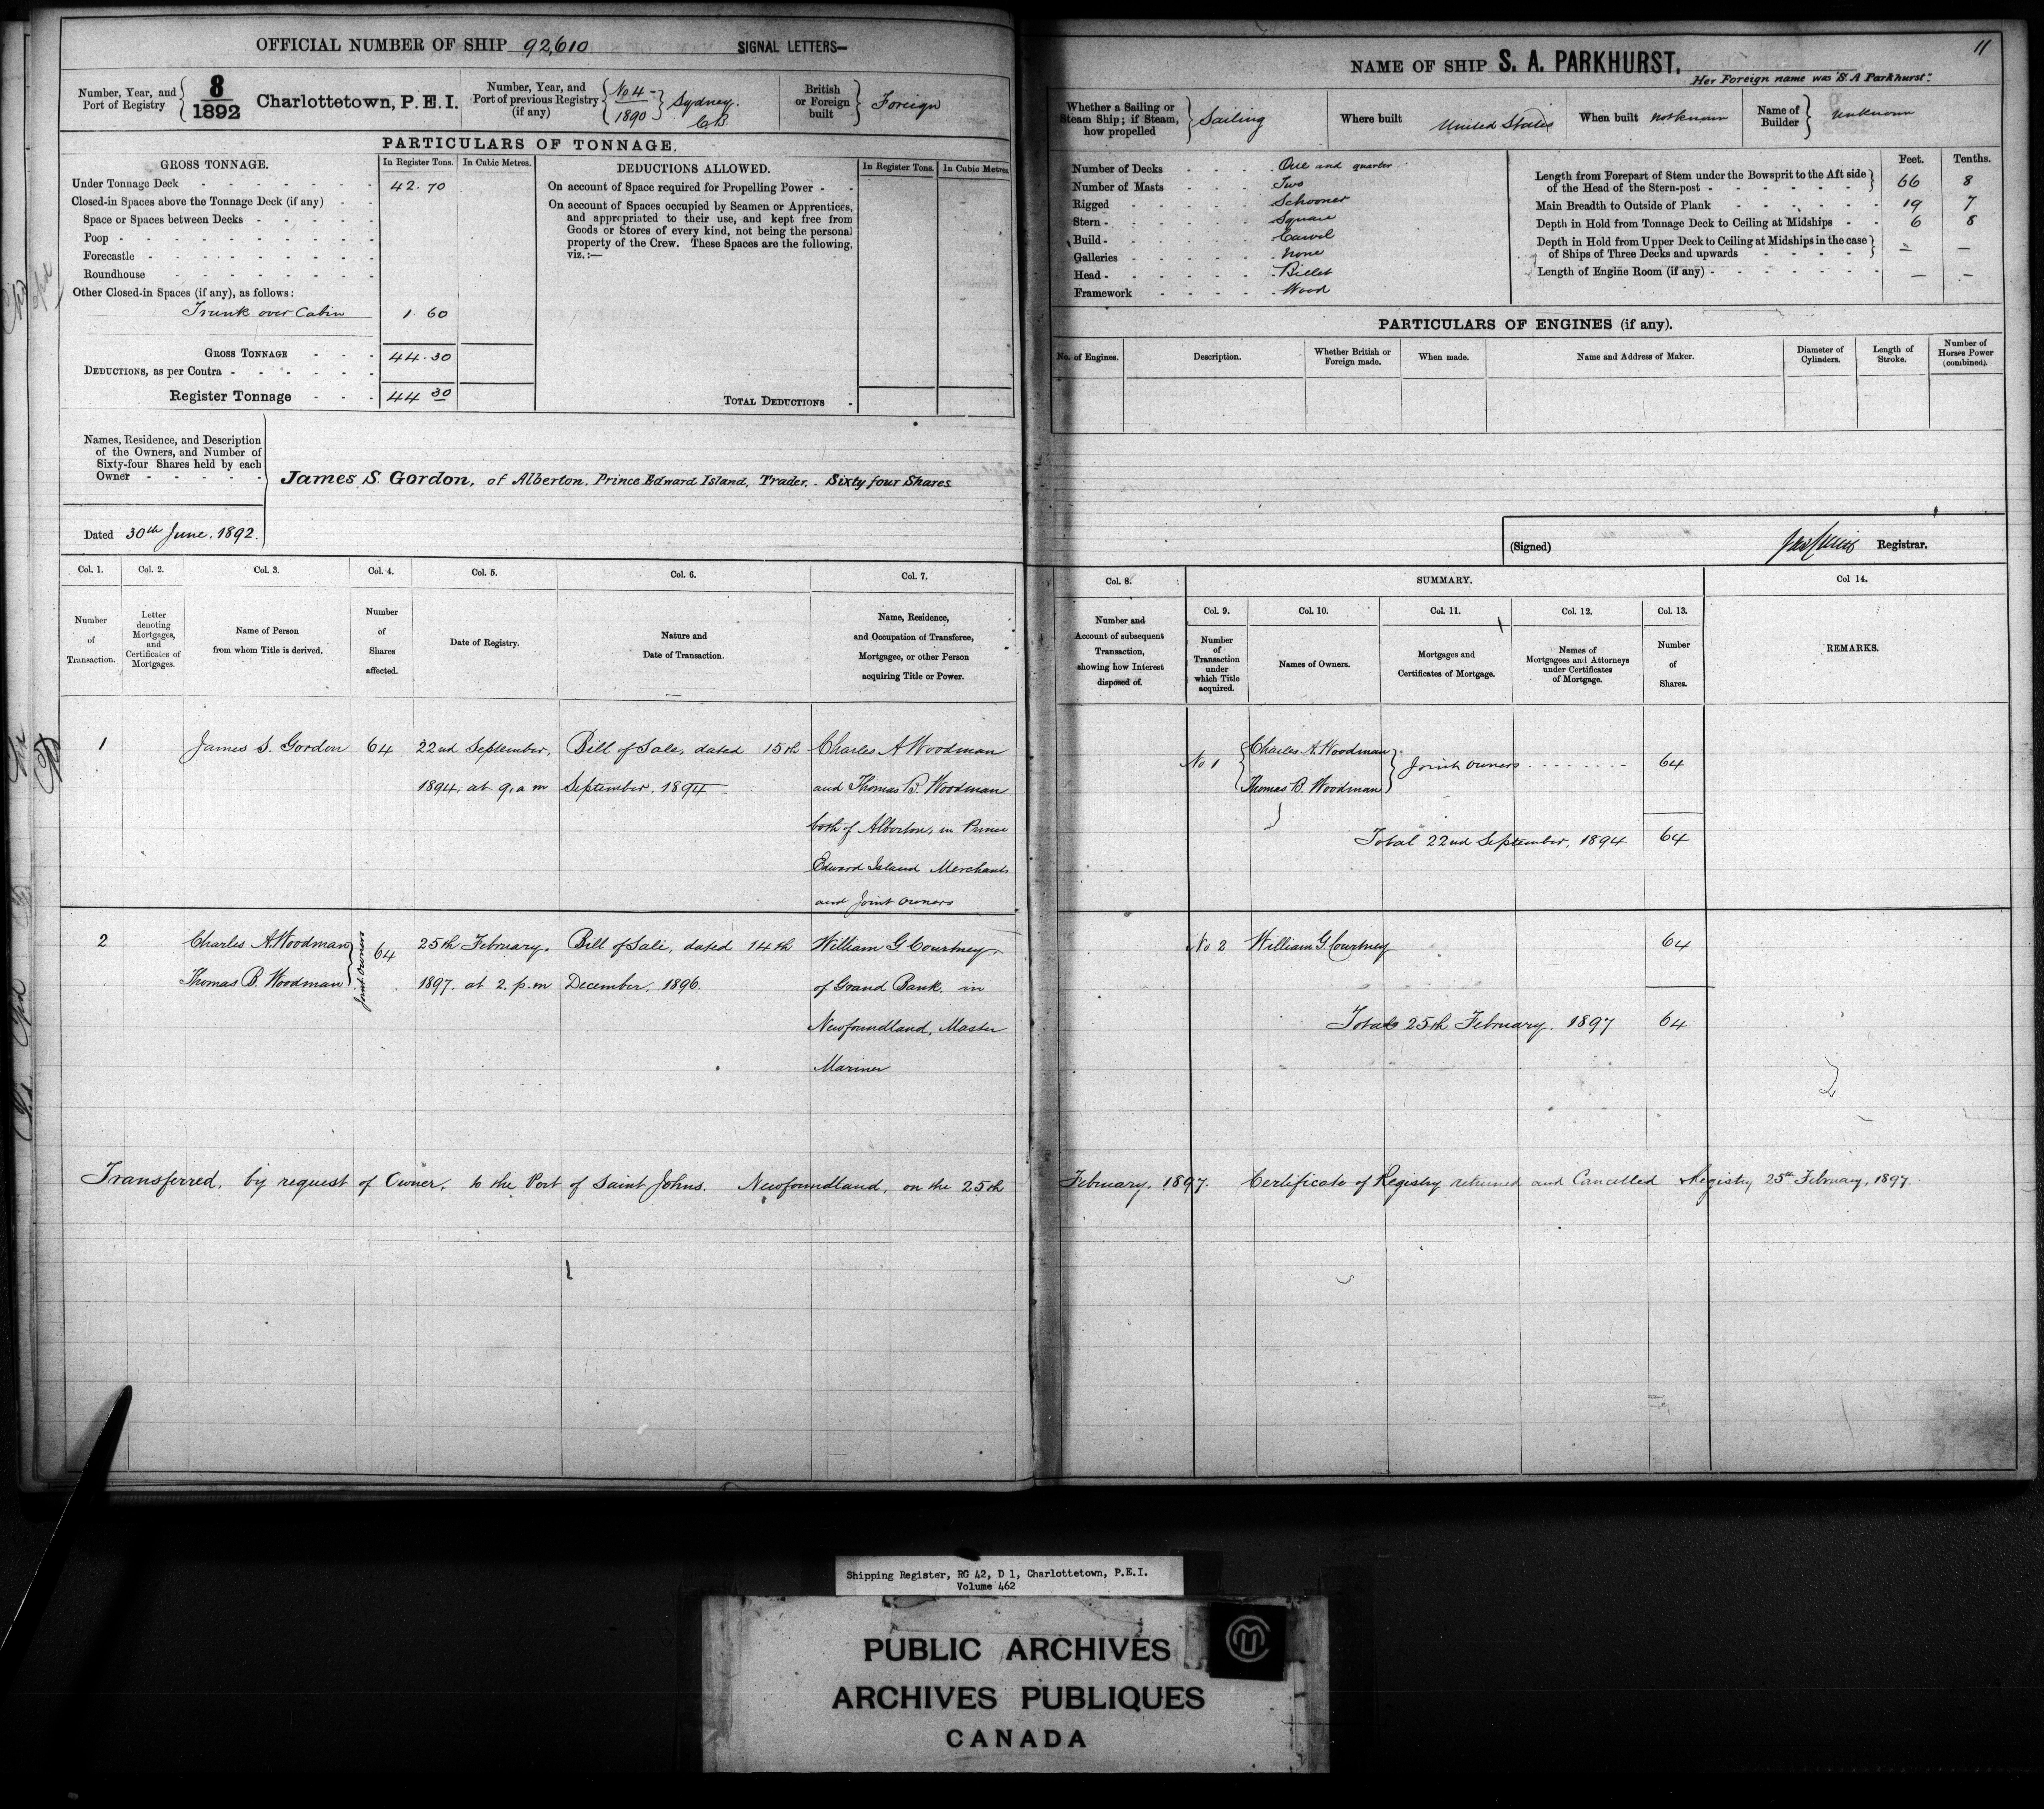 OFFICIAL NUMBER OF SHIP 92,610 SIGNAL LETTERS—
Number, Year, and Port of Registry 8/1892 Charlottetown, P.E.I.
Number, Year, and Port of previous Registry (if any) No 4 - 1890 Sydney. C.B.
British or Foreign built Foreign
PARTICULARS OF TONNAGE.
GROSS TONNAGE. In Register Tons. In Cubic Metres.
Under Tonnage Deck - 42.70
Closed-in Spaces above the Tonnage Deck (if any) -
Space or Spaces between Decks -
Poop -
Forecastle -
Roundhouse -
Other Closed-in Spaces (if any), as follows:
Trunk over Cabin 1 60
GROSS TONNAGE - 44.30
DEDUCTIONS, as per Contra -
Register Tonnage - 44 30
DEDUCTIONS ALLOWED. In Register Tons. In Cubic Metres
On account of Space required for Propelling Power -
On account of Spaces occupied by Seamen or Apprentices,
and appropriated to their use, and kept free from
Goods or Stores of every kind, not being the personal
property of the Crew. These Spaces are the following,
viz.:—
TOTAL DEDUCTIONS -
Names, Residence, and Description
of the Owners, and Number of
Sixty-four Shares held by each
Owner -
James S. Gordon, of Alberton, Prince Edward Island, Trader, - Sixty four Shares.
Dated 30th June, 1892.
Col. 1. Col. 2. Col. 3. Col. 4. Col. 5. Col. 6. Col. 7.
Number of Transaction.
Letter denoting Mortgages, and Certificates of Mortgages.
Name of Person from whom Title is derived.
Number of Shares affected.
Date of Registry.
Nature and Date of Transaction.
Name, Residence, and Occupation of Transferee, Mortgagee, or other Person acquiring Title or Power.
1 James S. Gordon 64 22nd September, Bill of Sale, dated 15th Charles A Woodman
1894. at 9. a m September, 1894 and Thomas B. Woodman
both of Alberton, in Prince
Edward Island Merchants
and Joint owners
2 Charles A. Woodman 64 25th February. Bill of Sale, dated 14th William G Courtney
Thomas B. Woodman Joint owners 1897. at 2. p.m December. 1896. of Grand Bank. in
Newfoundland, Master
Mariner
Transferred, by request of Owner, to the Port of Saint Johns. Newfoundland, on the 25th
11
NAME OF SHIP S. A. PARKHURST.
Her Foreign name was "S. A Parkhurst".
Whether a Sailing or Steam Ship; if Steam, how propelled Sailing
Where built United States
When built not known
Name of Builder unknown
Number of Decks - One and quarter
Number of Masts - Two
Rigged - Schooner
Stern - Square
Build - Carvel
Galleries - None
Head - Billet
Framework - Wood
Feet. Tenths.
Length from Forepart of Stem under the Bowsprit to the Aft side
of the Head of the Stern-post - 66 8
Main Breadth to Outside of Plank - 19 7
Depth in Hold from Tonnage Deck to Ceiling at Midships - 6 8
Depth in Hold from Upper Deck to Ceiling at Midships in the case
of Ships of Three Decks and upwards - — —
Length of Engine Room (if any) - — —
PARTICULARS OF ENGINES (if any).
No. of Engines. Description. Whether British or Foreign made. When made. Name and Address of Maker. Diameter of Cylinders. Length of Stroke. Number of Horses Power (combined).
(Signed) Registrar.
Col. 8. SUMMARY. Col 14.
Number and Account of subsequent Transaction, showing how Interest disposed of.
Col. 9. Col. 10. Col. 11. Col. 12. Col. 13.
Number of Transaction under which Title acquired.
Names of Owners.
Mortgages and Certificates of Mortgage.
Names of Mortgagees and Attorneys under Certificates of Mortgage.
Number of Shares.
REMARKS.
No 1 Charles A. Woodman Joint owners 64
Thomas B. Woodman
Total 22nd September, 1894 64
No 2 William G. Courtney 64
Total 25th February. 1897 64
February. 1897. Certificate of Registry returned and Cancelled Registry 25th February, 1897.
Shipping Register, RG 42, D 1, Charlottetown, P.E.I.
Volume 462
PUBLIC ARCHIVES
ARCHIVES PUBLIQUES
CANADA